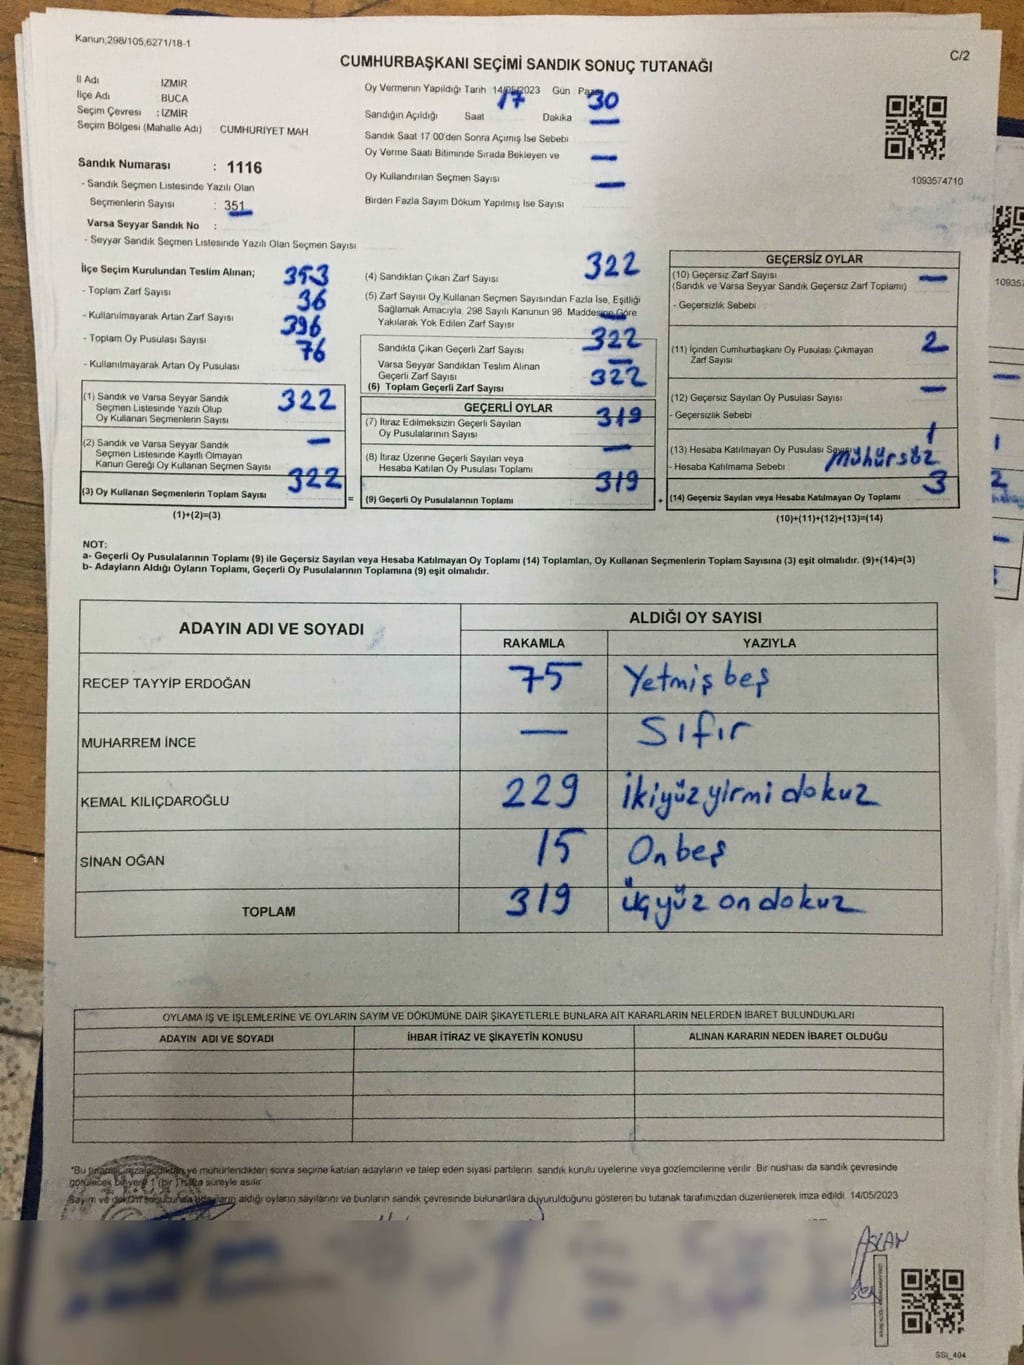 Kanun,298/105,6271/18-1
C/2
CUMHURBAŞKANI SEÇİMİ SANDIK SONUÇ TUTANAĞI
İl Adı İZMİR
İlçe Adı BUCA
Seçim Çevresi : İZMİR
Seçim Bölgesi (Mahalle Adı) CUMHURİYET MAH
Sandık Numarası : 1116
- Sandık Seçmen Listesinde Yazılı Olan
Seçmenlerin Sayısı : 351
Varsa Seyyar Sandık No :
- Seyyar Sandık Seçmen Listesinde Yazılı Olan Seçmen Sayısı
Oy Vermenin Yapıldığı Tarih 14/05/2023 Gün : Pazar
Sandığın Açıldığı Saat 17 Dakika 30
Sandık Saat 17 00'den Sonra Açımış İse Sebebi —
Oy Verme Saati Bitiminde Sırada Bekleyen ve
Oy Kullandırılan Seçmen Sayısı —
Birden Fazla Sayım Döküm Yapılmış İse Sayısı —
1093574710
İlçe Seçim Kurulundan Teslim Alınan;
- Toplam Zarf Sayısı 353
- Kullanılmayarak Artan Zarf Sayısı 36
- Toplam Oy Pusulası Sayısı 396
- Kullanılmayarak Artan Oy Pusulası 76
(1) Sandık ve Varsa Seyyar Sandık
Seçmen Listesinde Yazılı Olup
Oy Kullanan Seçmenlerin Sayısı 322
(2) Sandık ve Varsa Seyyar Sandık
Seçmen Listesinde Kayıtlı Olmayan
Kanun Gereği Oy Kullanan Seçmen Sayısı —
(3) Oy Kullanan Seçmenlerin Toplam Sayısı 322 =
(1)+(2)=(3)
(4) Sandıktan Çıkan Zarf Sayısı 322
(5) Zarf Sayısı Oy Kullanan Seçmen Sayısından Fazla İse, Eşitliği
Sağlamak Amacıyla, 298 Sayılı Kanunun 98. Maddesine Göre
Yakılarak Yok Edilen Zarf Sayısı —
Sandıkta Çıkan Geçerli Zarf Sayısı 322
Varsa Seyyar Sandıktan Teslim Alınan
Geçerli Zarf Sayısı —
(6) Toplam Geçerli Zarf Sayısı 322
GEÇERLİ OYLAR
(7) İtiraz Edilmeksizin Geçerli Sayılan
Oy Pusulalarının Sayısı 319
(8) İtiraz Üzerine Geçerli Sayılan veya
Hesaba Katılan Oy Pusulası Toplamı —
(9) Geçerli Oy Pusulalarının Toplamı 319 +
GEÇERSİZ OYLAR
(10) Geçersiz Zarf Sayısı —
(Sandık ve Varsa Seyyar Sandık Geçersiz Zarf Toplamı)
- Geçersizlik Sebebi
(11) İçinden Cumhurbaşkanı Oy Pusulası Çıkmayan
Zarf Sayısı 2
(12) Geçersiz Sayılan Oy Pusulası Sayısı —
- Geçersizlik Sebebi
(13) Hesaba Katılmayan Oy Pusulası Sayısı 1
- Hesaba Katılmama Sebebi mühürsüz
(14) Geçersiz Sayılan veya Hesaba Katılmayan Oy Toplamı 3
(10)+(11)+(12)+(13)=(14)
NOT:
a- Geçerli Oy Pusulalarının Toplamı (9) ile Geçersiz Sayılan veya Hesaba Katılmayan Oy Toplamı (14) Toplamları, Oy Kullanan Seçmenlerin Toplam Sayısına (3) eşit olmalıdır. (9)+(14)=(3)
b- Adayların Aldığı Oyların Toplamı, Geçerli Oy Pusulalarının Toplamına (9) eşit olmalıdır.
ADAYIN ADI VE SOYADI ALDIĞI OY SAYISI
RAKAMLA YAZIYLA
RECEP TAYYİP ERDOĞAN 75 Yetmiş beş
MUHARREM İNCE — Sıfır
KEMAL KILIÇDAROĞLU 229 İkiyüz yirmi dokuz
SİNAN OĞAN 15 On beş
TOPLAM 319 üçyüz on dokuz
OYLAMA İŞ VE İŞLEMLERİNE VE OYLARIN SAYIM VE DÖKÜMÜNE DAİR ŞİKAYETLERLE BUNLARA AİT KARARLARIN NELERDEN İBARET BULUNDUKLARI
ADAYIN ADI VE SOYADI İHBAR İTİRAZ VE ŞİKAYETİN KONUSU ALINAN KARARIN NEDEN İBARET OLDUĞU
ve mühürlendikten sonra seçime katılan adayların ve talep eden siyasi partilerin sandık kurulu üyelerine veya gözlemcilerine verilir. Bir nüshası da sandık çevresinde
süreyle asılır
aldığı oyların sayılarını ve bunların sandık çevresinde bulunanlara duyurulduğunu gösteren bu tutanak tarafımızdan düzenlenerek imza edildi. 14/05/2023
ASLAN
SSI_404